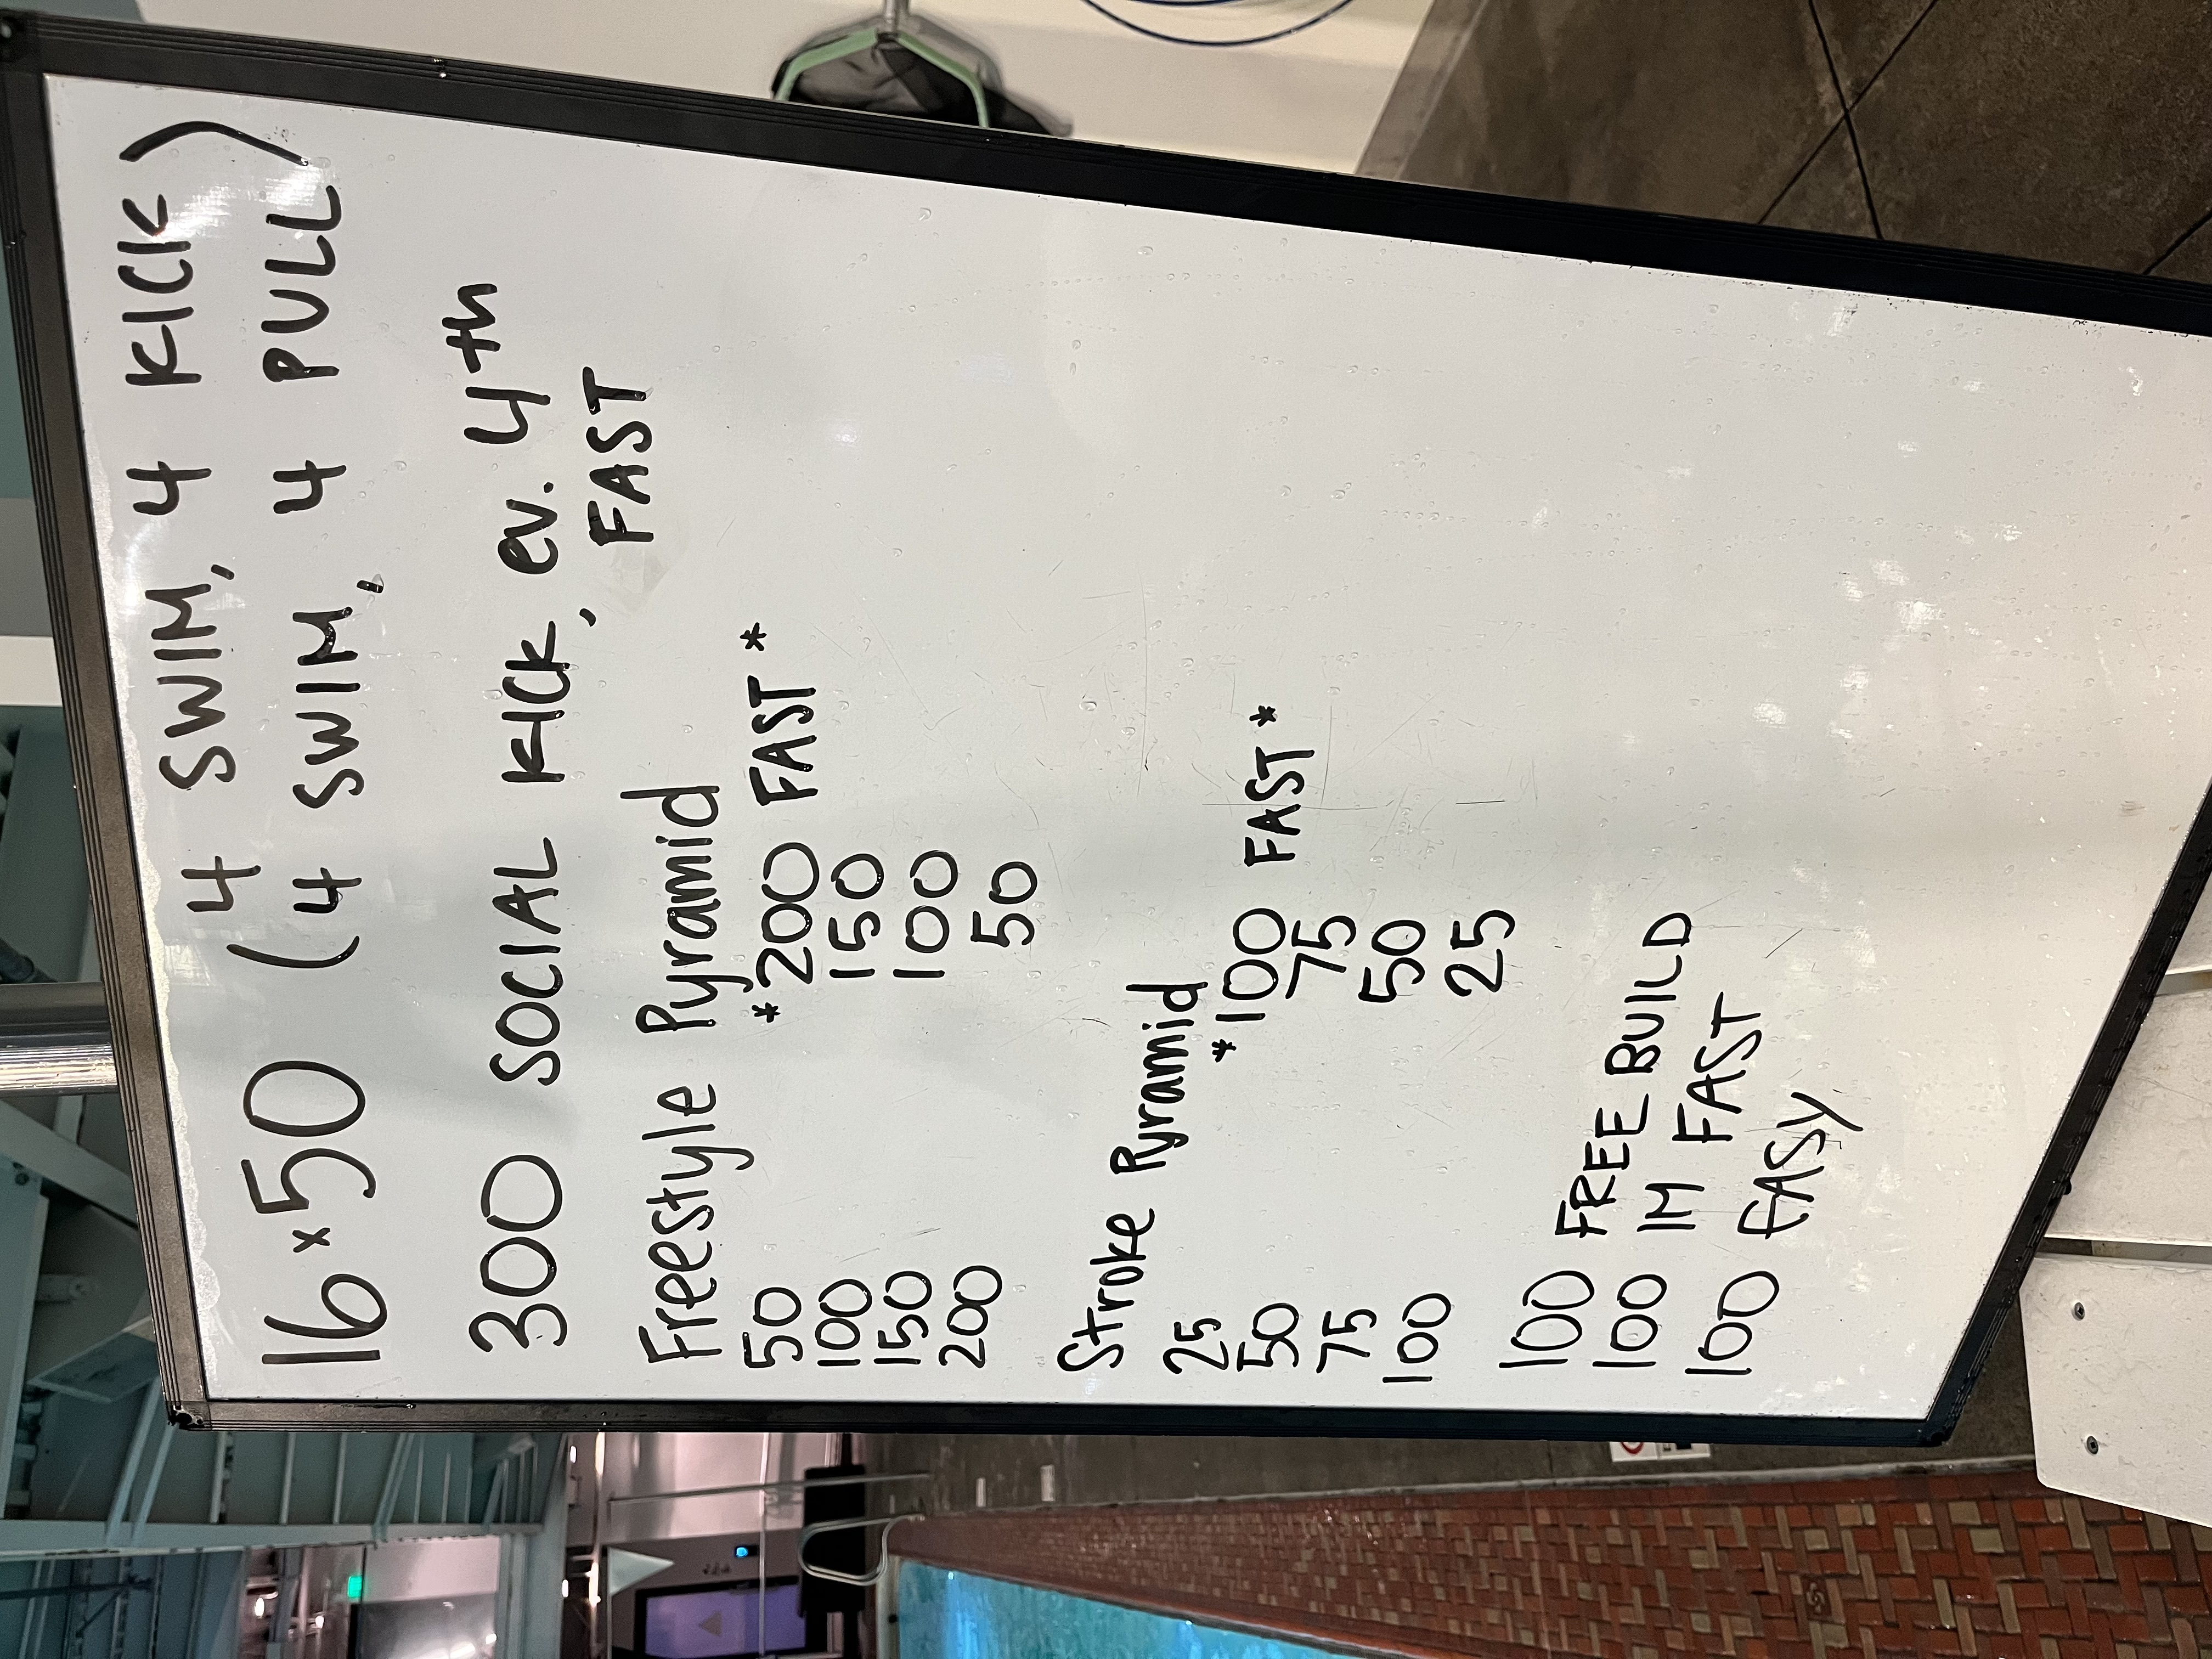 16x50 (4 SWIM, 4 KICK
4 SWIM, 4 PULL)
300 SOCIAL KICK, ev. 4th
FAST
Freestyle Pyramid
50 *200 FAST*
100 150
150 100
200 50
Stroke Pyramid
25 *100 FAST*
50 75
75 50
100 25
100 FREE BUILD
100 IM FAST
100 EASY